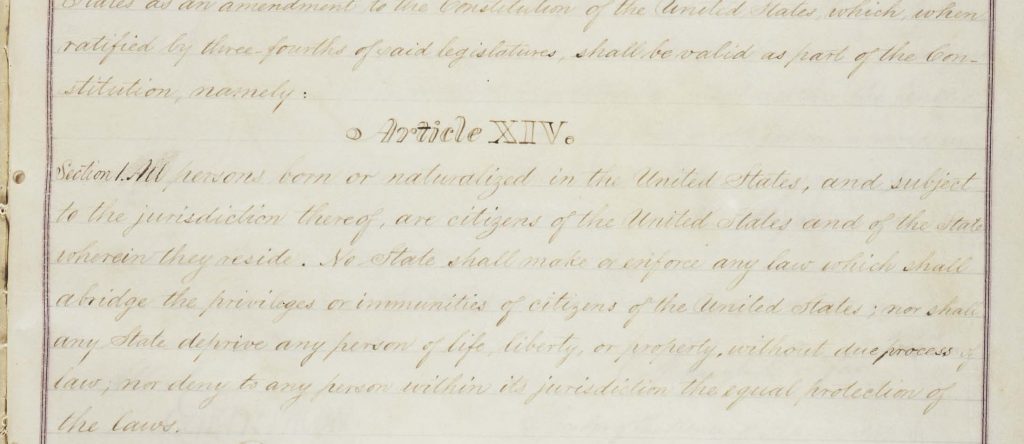 States as an amendment to the Constitution of the United States, which, when
ratified by three-fourths of said legislatures, shall be valid as part of the Con-
stitution, namely:
Article XIV.
Section 1. All persons born or naturalized in the United States, and subject
to the jurisdiction thereof, are citizens of the United States and of the State
wherein they reside. No State shall make or enforce any law which shall
abridge the privileges or immunities of citizens of the United States; nor shall
any State deprive any person of life, liberty, or property, without due process of
law; nor deny to any person within its jurisdiction the equal protection of
the laws.